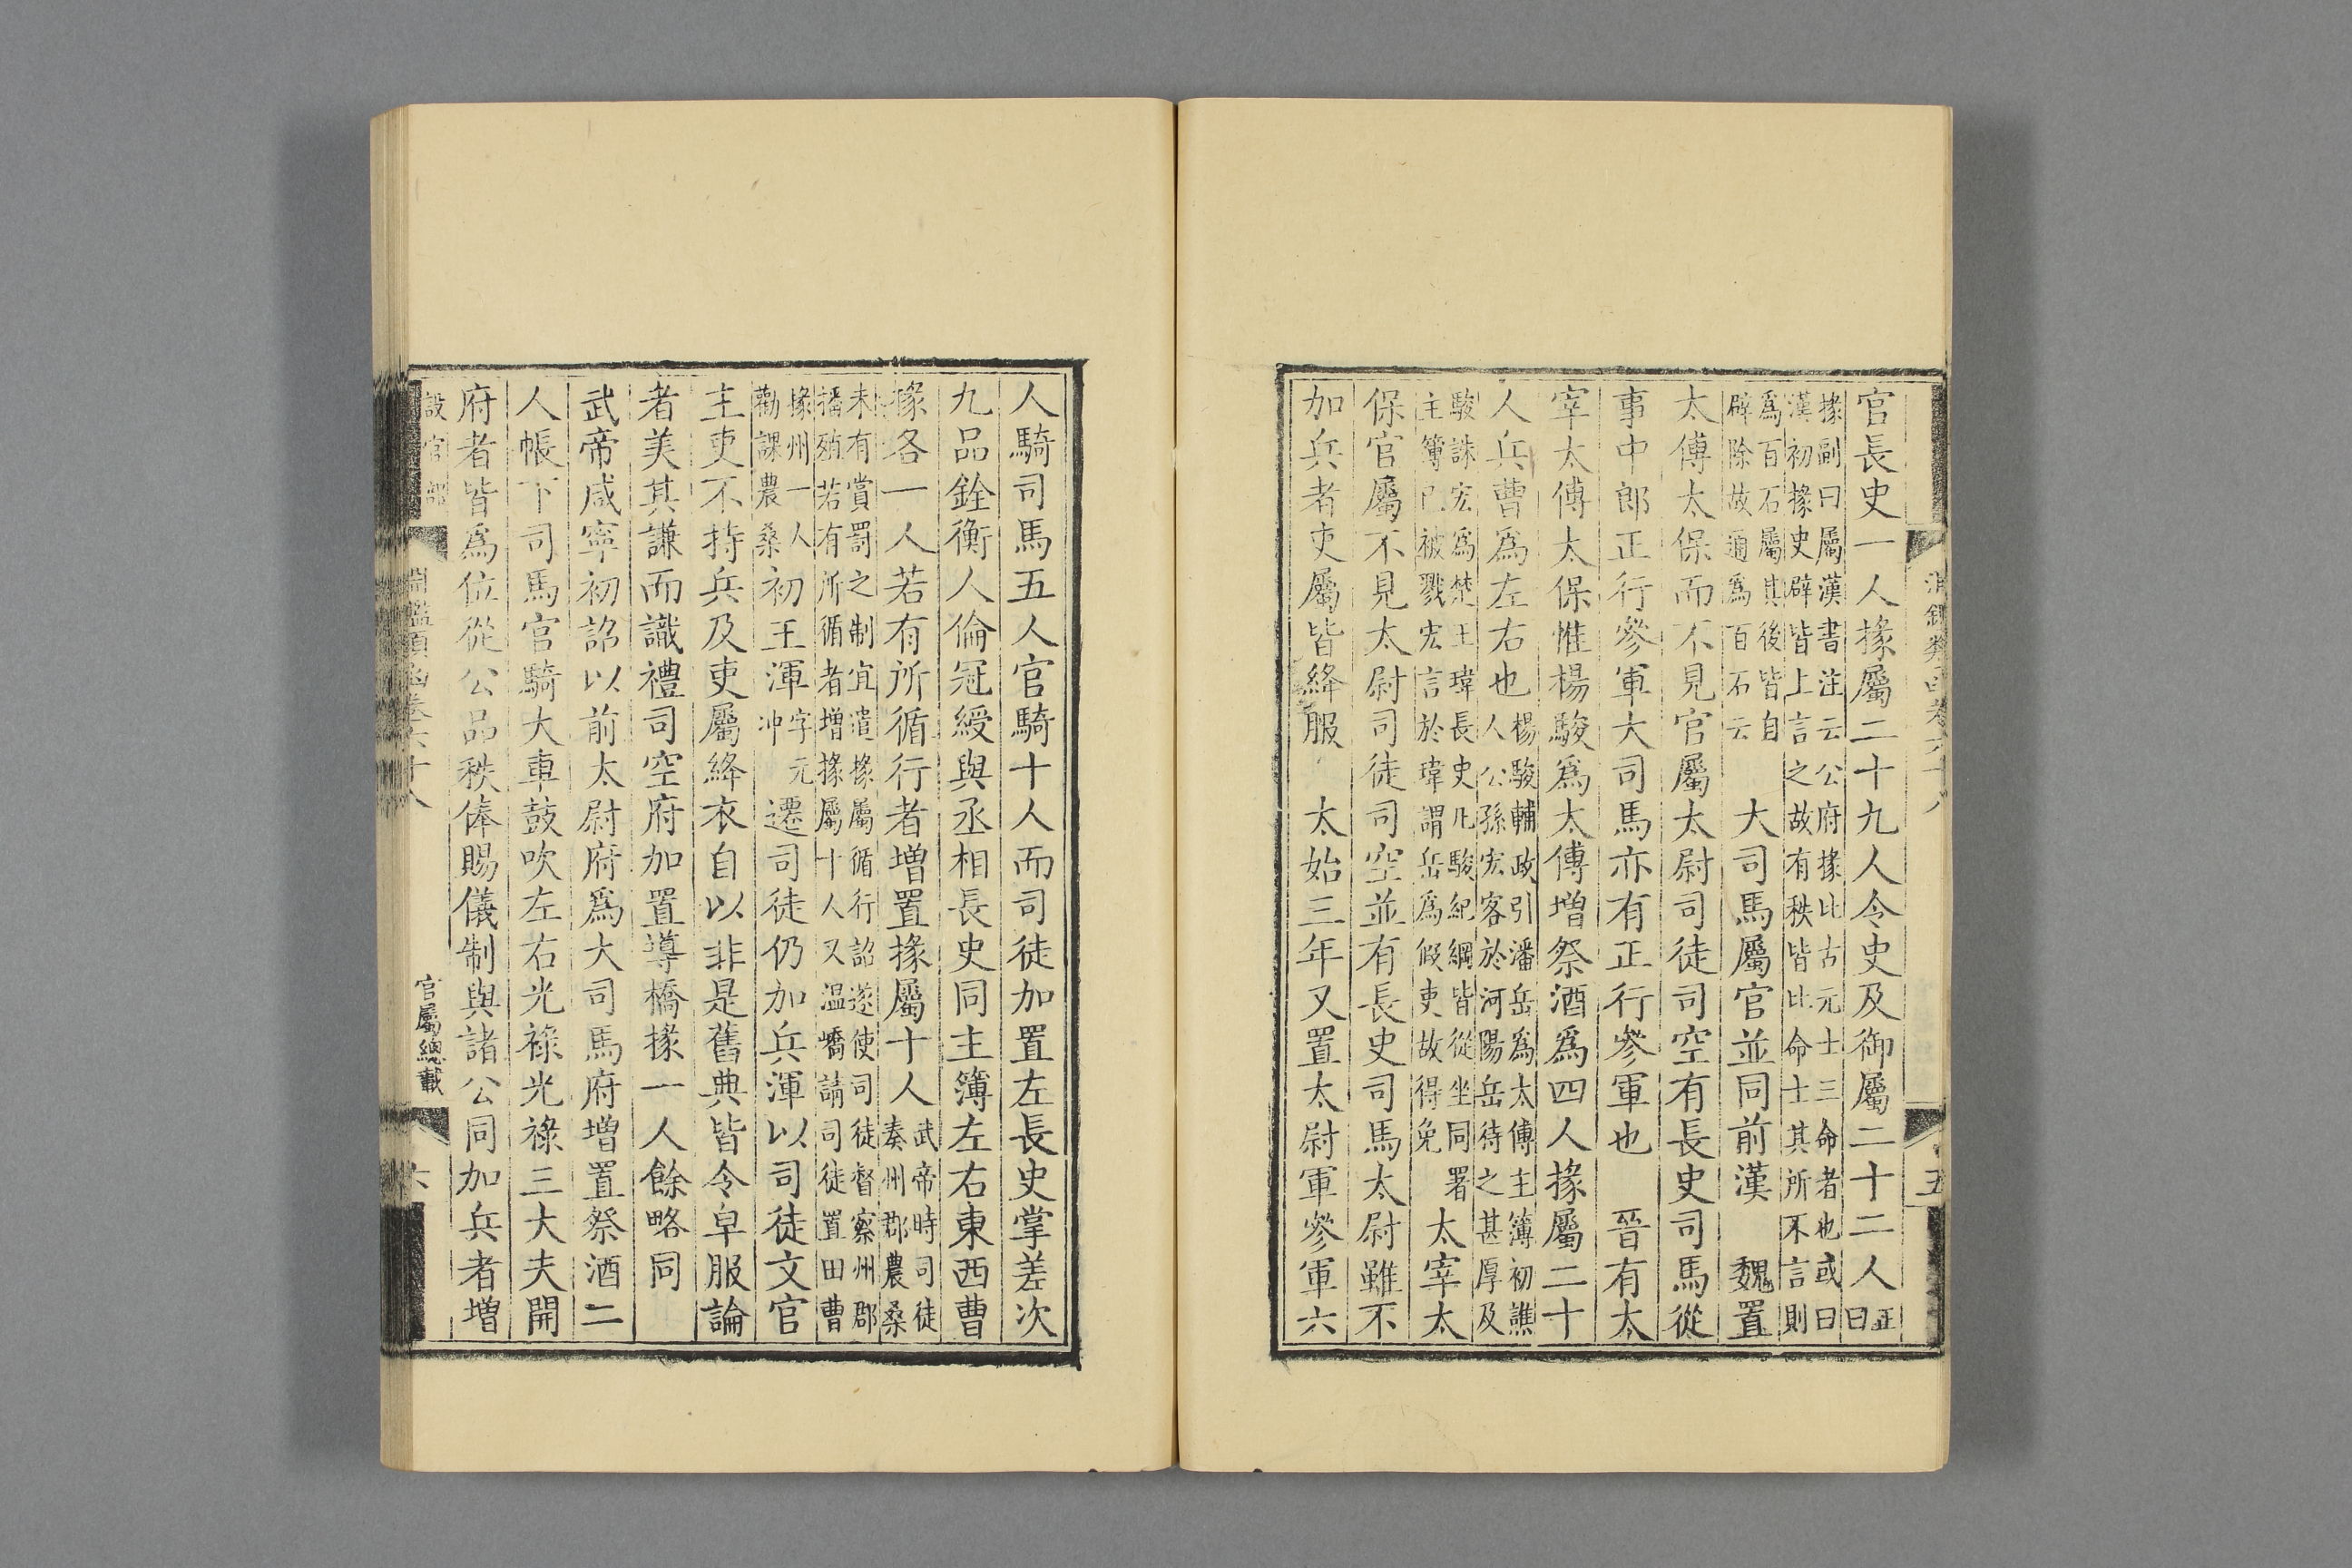 官長史一人掾屬二十九人令史及御屬二十二人正曰
掾副曰屬漢書注云公府掾比古元士三命者也或曰
漢初掾史辟皆上言之故有秩皆比命士其所不言則
爲百石屬其後皆自
辟除故通爲百石云
大司馬屬官並同前漢 魏置
太傅太保而不見官屬太尉司徒司空有長史司馬從
事中郎正行參軍大司馬亦有正行參軍也 晉有太
宰太傅太保惟楊駿爲太傅增祭酒爲四人掾屬二十
人兵曹爲左右也
楊駿輔政引潘岳爲太傅主簿初譙
人公孫宏客於河陽岳待之甚厚及
駿誅宏爲楚王瑋長史凡駿紀綱皆從坐同署
主簿已被戮宏言於瑋謂岳爲假吏故得免
太宰太
保官屬不見太尉司徒司空並有長史司馬太尉雖不
加兵者吏屬皆絳服 太始三年又置太尉軍參軍六
五
人騎司馬五人官騎十人而司徒加置左長史掌差次
九品銓衡人倫冠綬與丞相長史同主簿左右東西曹
掾各一人若有所循行者增置掾屬十人
武帝時司徒
奏州郡農桑
未有賞罰之制宜遣掾屬循行詔遂使司徒督察州郡
播殖若有所循者增掾屬十人又温嶠請司徒置田曹
掾州一人
勸課農桑
初王渾
字元
冲
遷司徒仍加兵渾以司徒文官
主吏不持兵及吏屬絳衣自以非是舊典皆令皁服論
者美其謙而識禮司空府加置導橋掾一人餘略同
武帝咸寧初詔以前太尉府爲大司馬府增置祭酒二
人帳下司馬官騎大車鼓吹左右光祿光祿三大夫開
府者皆爲位從公品秩俸賜儀制與諸公同加兵者增
設官部
淵鑑類函卷六十八
官屬總載
六